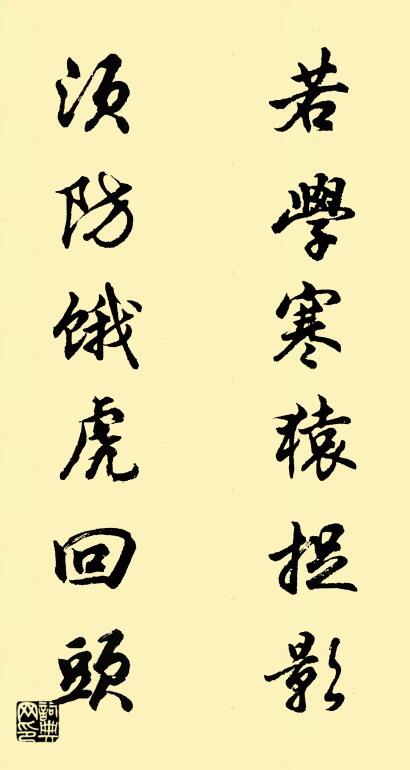 若學寒猿捉影
須防餓虎回頭
詞典网印